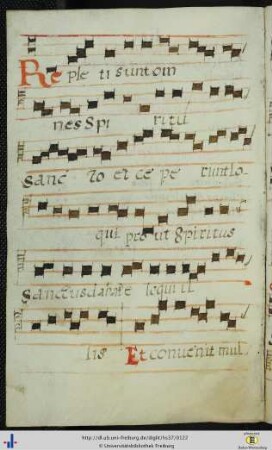 Reple ti sunt om
nes Spi ritu
Sanc to et ce pe runt lo
qui pro ut Spiritus
Sanctus dabate loqui il
lis Et convenit mul
http://dl.ub.uni-freiburg.de/diglit/hs37/0122
© Universitätsbibliothek Freiburg